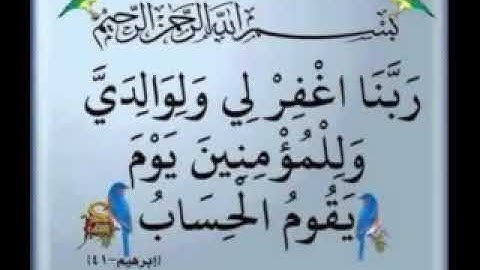 بسم الله الرحمن الرحيم
رَبَّنَا اغْفِرْ لِي وَلِوَالِدَيَّ
وَلِلْمُؤْمِنِينَ يَوْمَ
يَقُومُ الْحِسَابُ
(إبرهيم-٤١)